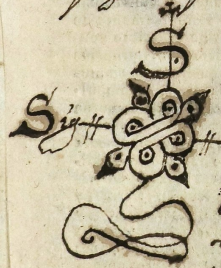 S
Sig